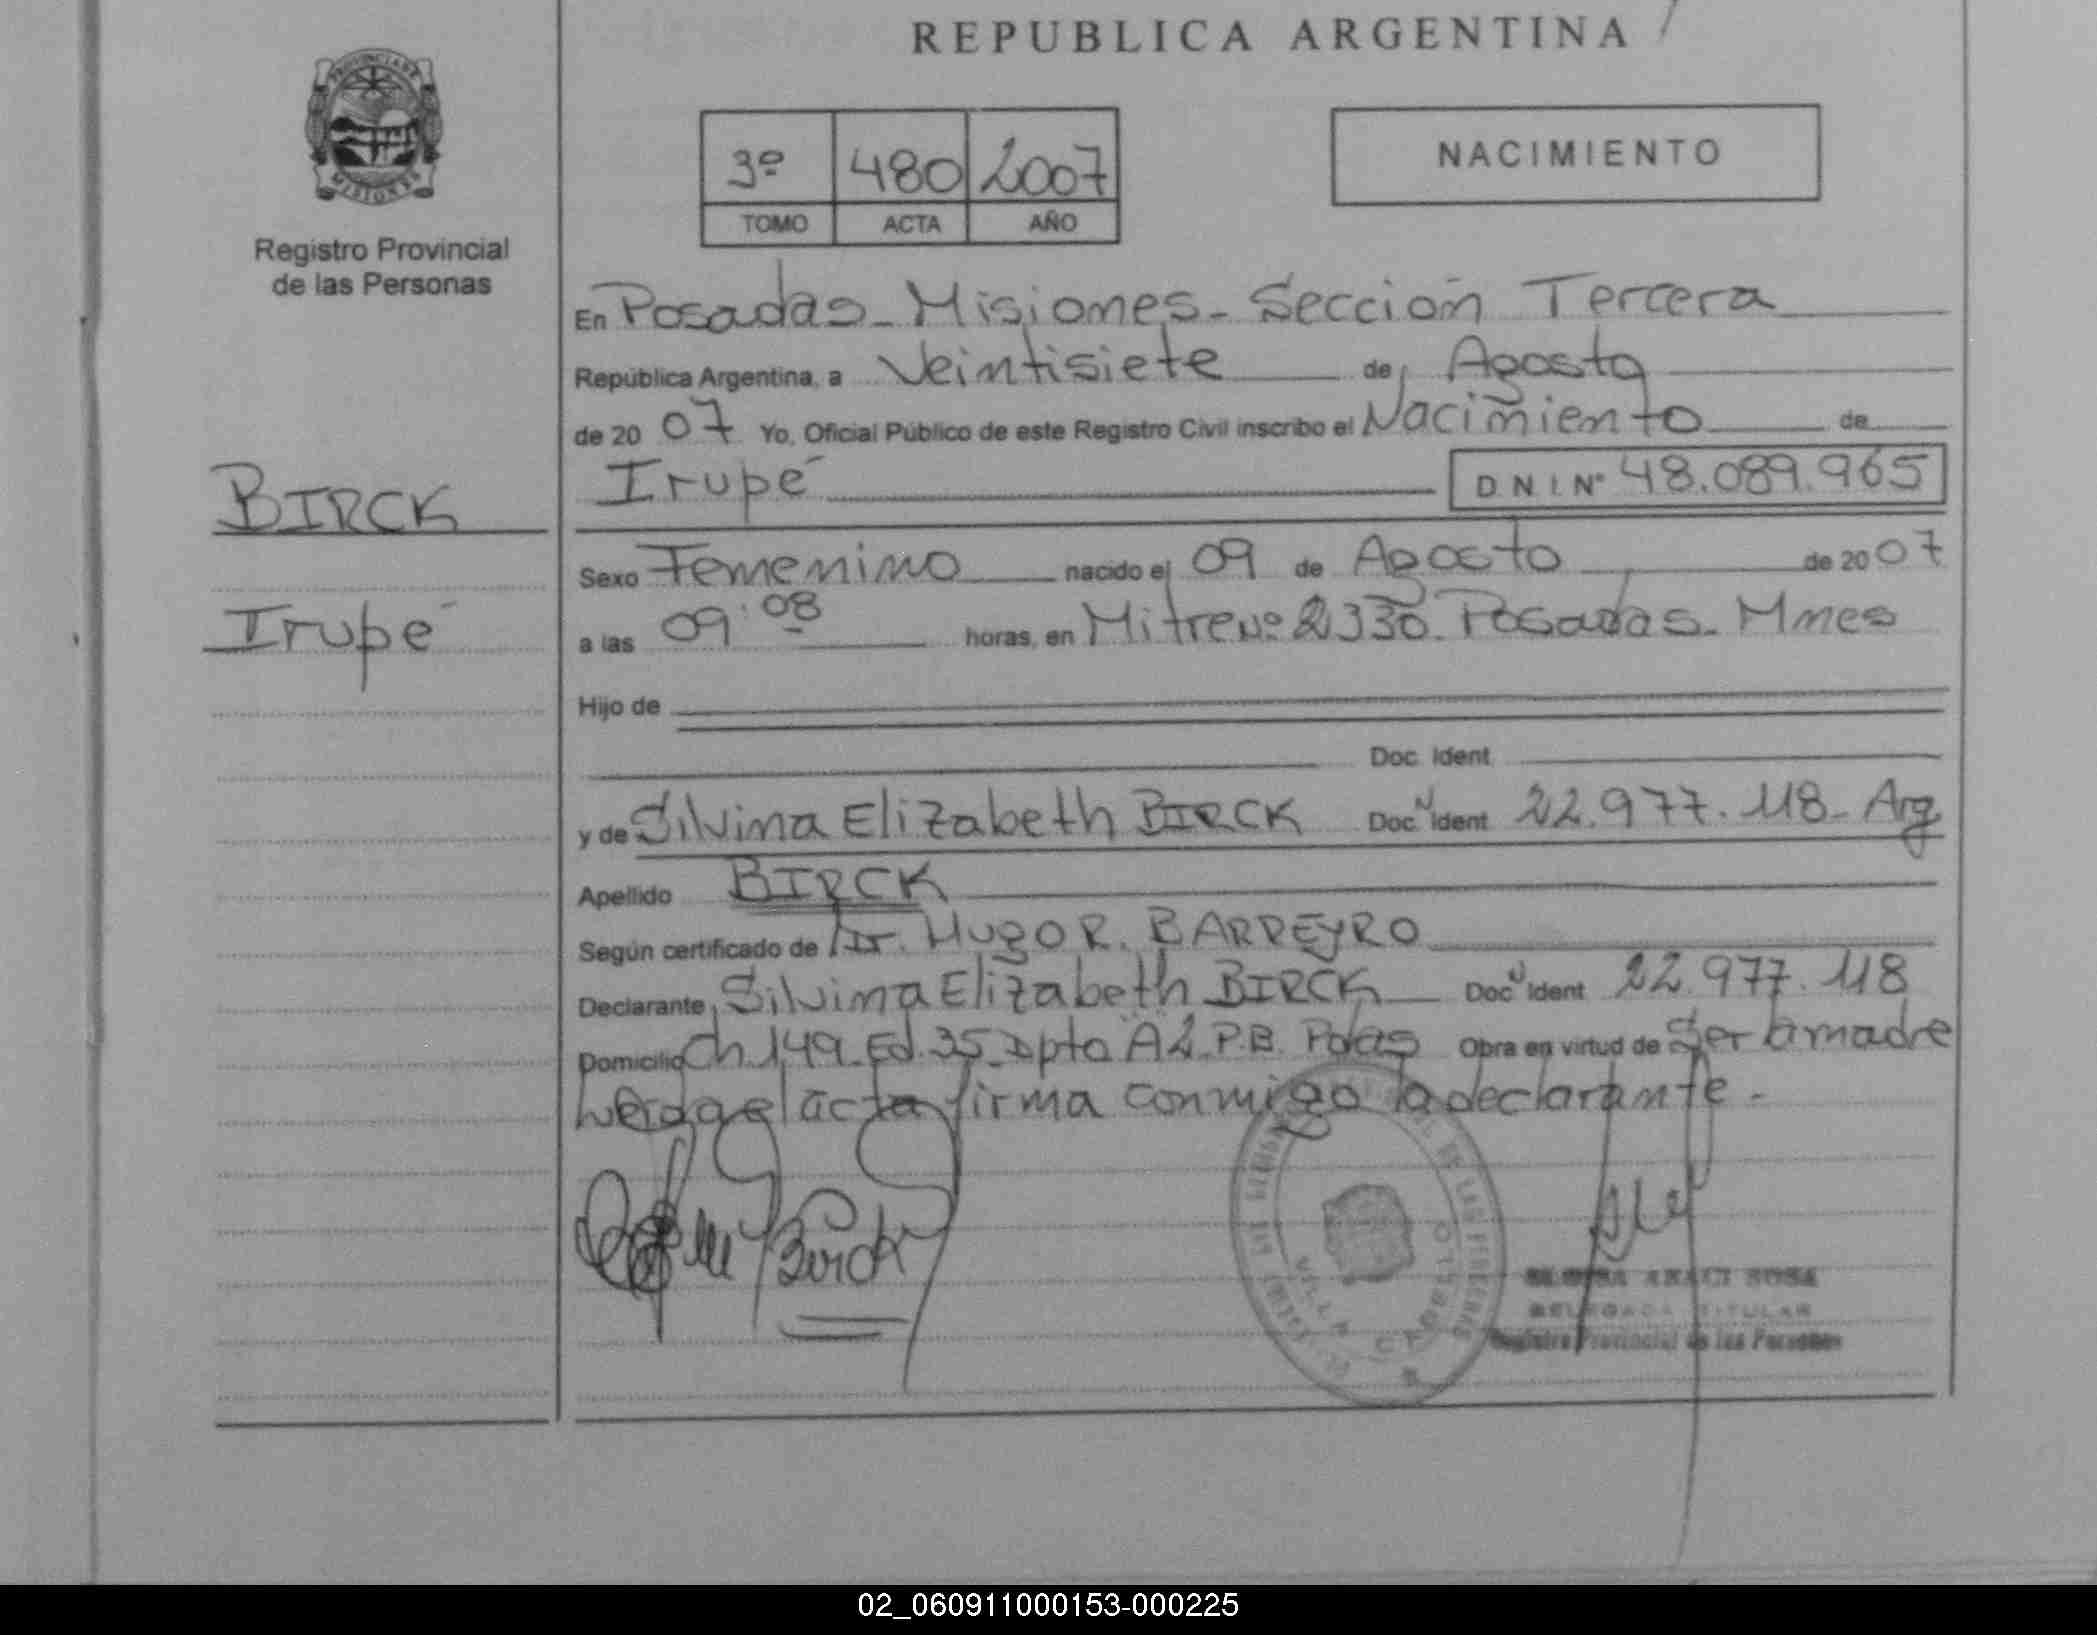 REPUBLICA ARGENTINA
PROVINCIA DE
MISIONES
Registro Provincial
de las Personas
3º 480 2007
TOMO ACTA AÑO
NACIMIENTO
En Posadas - Misiones - Sección Tercera
República Argentina, a Veintisiete de Agosto
de 20 07 Yo, Oficial Público de este Registro Civil inscribo el Nacimiento de
BIRCK
Irupé D.N.I. Nº 48.089.965
Sexo Femenino nacido el 09 de Agosto de 20 07
Irupé
a las 09:08 horas, en Mitre Nº 2330. Posadas - Mnes
Hijo de
Doc. Ident.
y de Silvina Elizabeth BIRCK Doc. N Ident. 22.977.118 - Arg
Apellido BIRCK
Según certificado de Dr. Hugo R. BARREYRO
Declarante Silvina Elizabeth BIRCK Doc. N Ident. 22.977.118
Domicilio Ch 149 Ed. 35 Dpto A2 P.B. Pdas Obra en virtud de Ser la madre
acta firma conmigo la declarante -
Birck
VILLA CABELLO
SOSA
DELEGADA TITULAR
Registro Provincial de las Personas
02_060911000153-000225